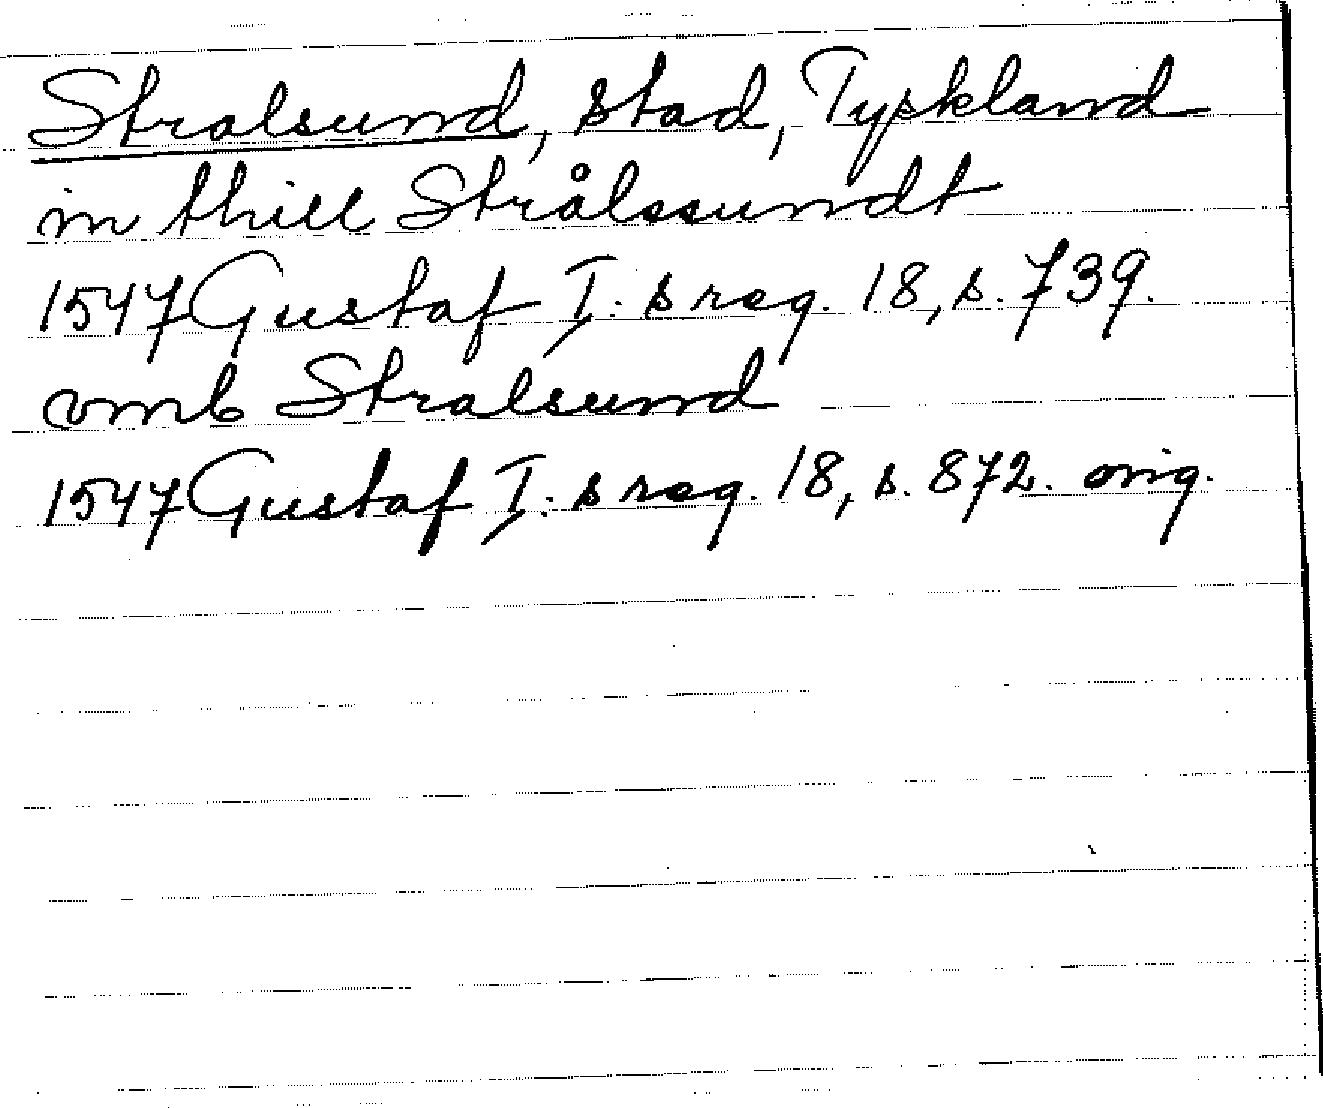 Stralsund, stad, Tyskland
in thill Strålssundt
1547 Gustaf I:s reg. 18, s. 739.
omb Stralsund
1547 Gustaf I:s reg. 18, s. 872. orig.